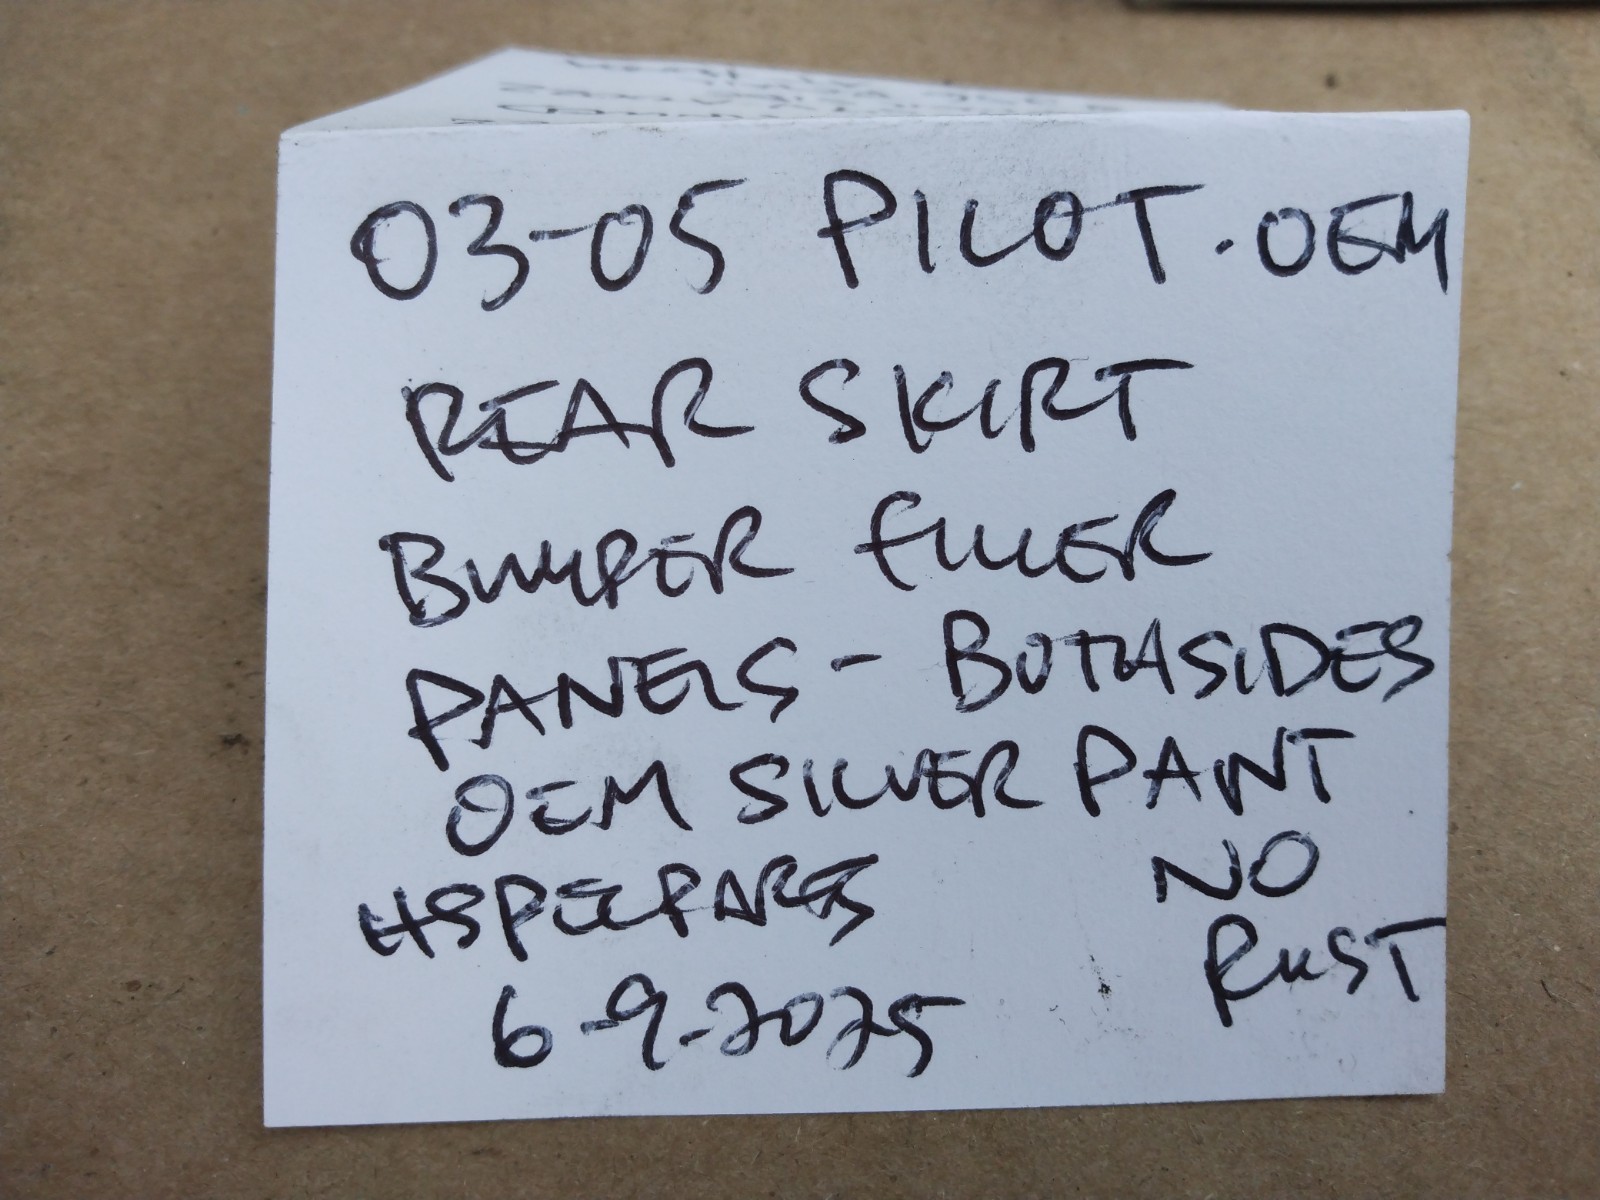 03-05 PILOT. OEM
REAR SKIRT
BUMPER FILLER
PANELS - BOTH SIDES
OEM SILVER PAINT
NO
RUST
6-9-2025